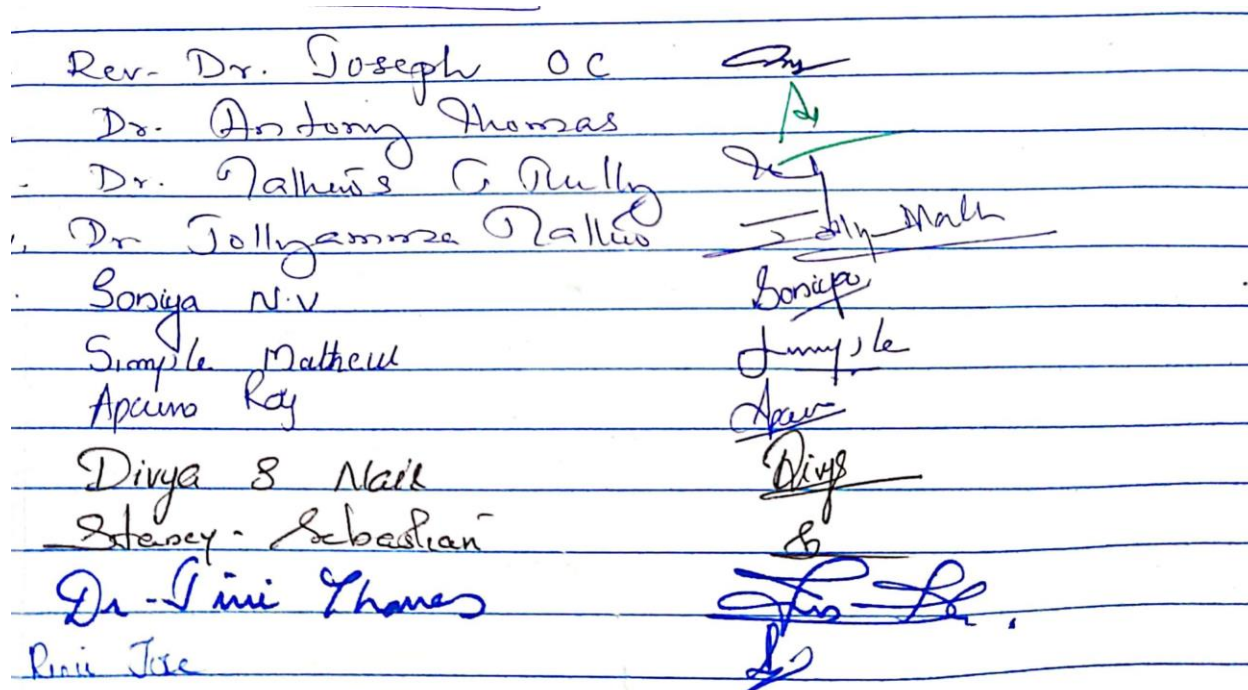 Rev. Dr. Joseph OC
Dr. Antony Thomas
Dr. Mathews
Dr Jollyamma Mathew Jolly Math
Soniya N.V Soniya
Simple Mathew Simple
Aparna Roy Aparn
Divya S Nair Divya
Stancy Sebastian
Dr. Tini Thomas
Rini Jose